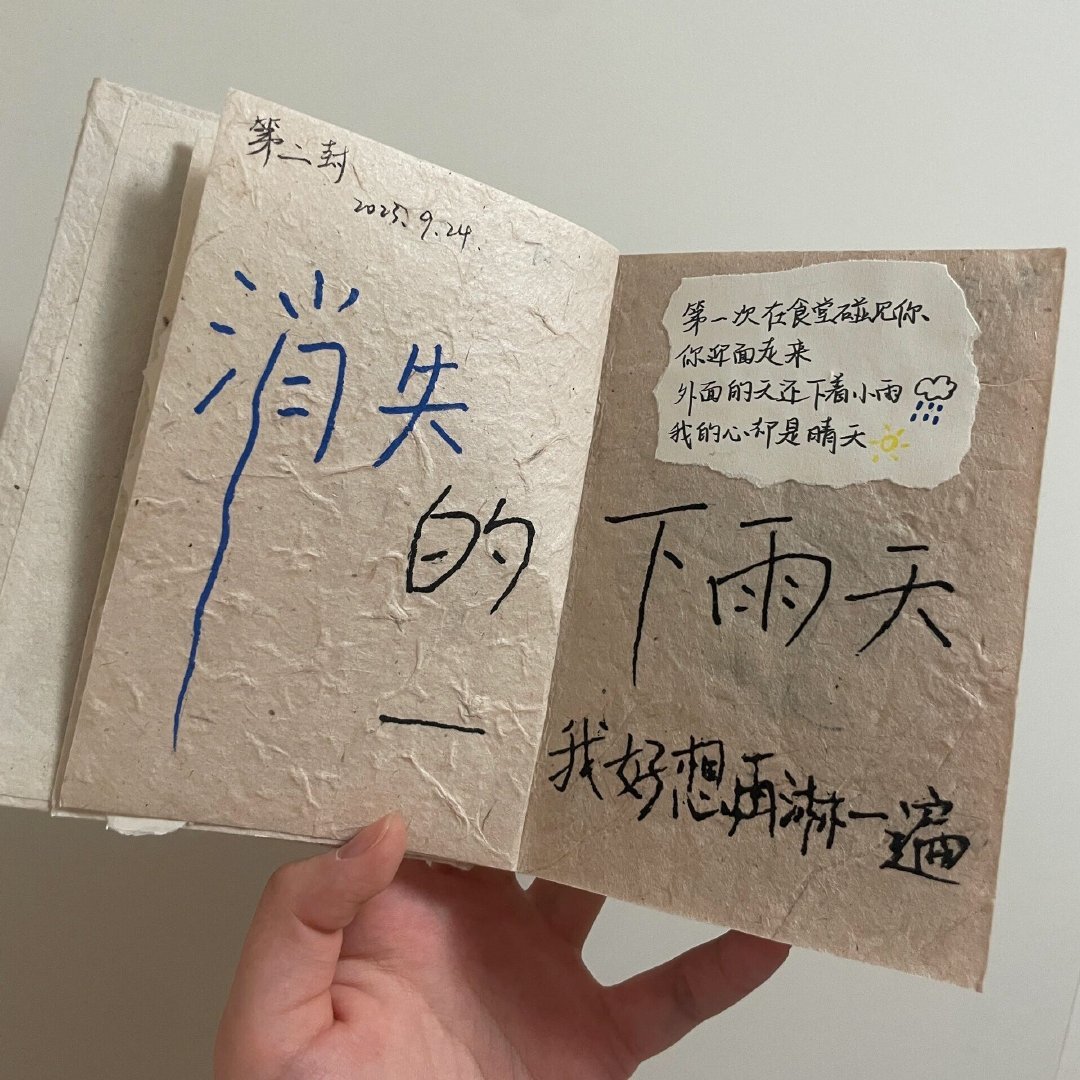 第二封
2025.9.24.
消失
的
一
第一次在食堂碰见你、
你迎面走来
外面的天还下着小雨
我的心却是晴天
下雨天
我好想再淋一遍